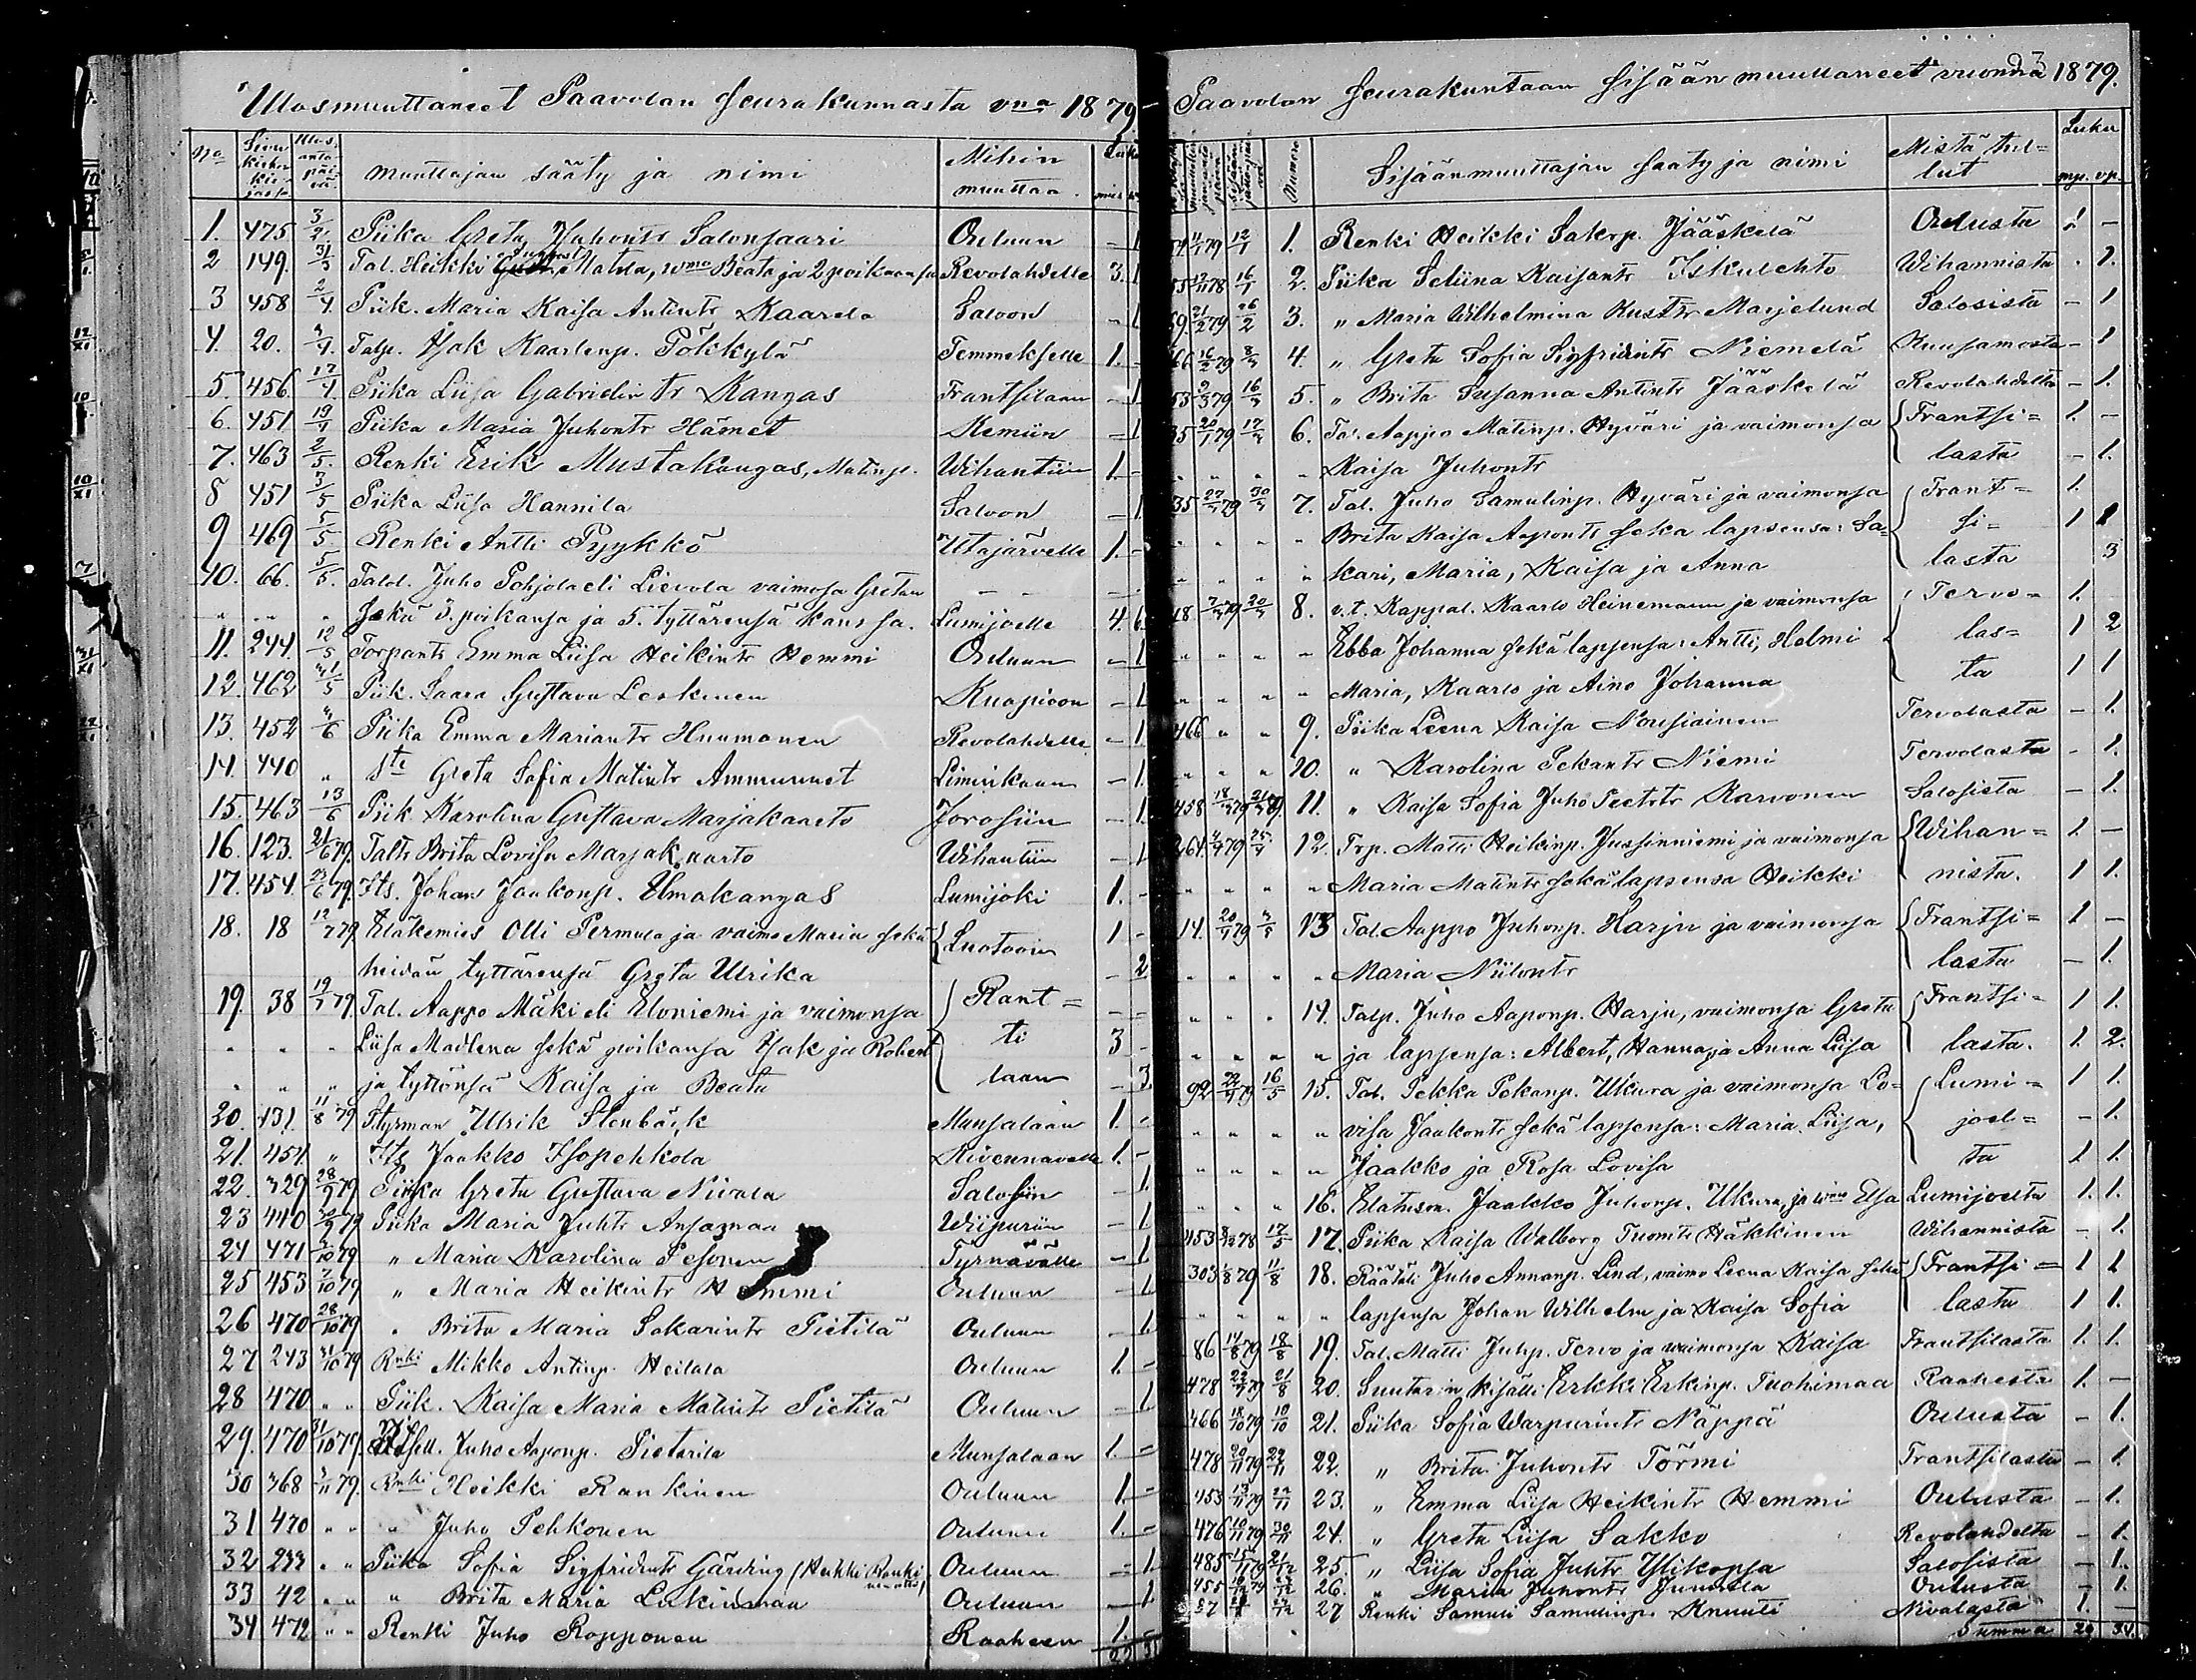 Ulosmuuttaneet Paavolan seurakunnasta vna 1879
No Sivu kirkon kirjassa Ulosantopäivä muuttajan sääty ja nimi Mihin muuttaa. Luku
1. 475 3/2 Piika Greta Juhontr Salonsaari Ouluun – 1
2 149. 31/3 Tal. Heikki Matila, wmo Beata ja 2 poikaansa Revolahdelle 3. 1
3 458 2/4. Piik. Maria Kaisa Antintr Kaarela Saloon – 1
4. 20. Talp. Isak Kaarlenp. Pökkylä Temmekselle 1. –
5. 456. 17/4. Piika Liisa Gabrielintr Kangas Frantsilaan – 1
6. 451 19/4 Piika Maria Juhontr Hämet Kemiin – 1
7. 463 2/5. Renki Erik Mustakangas, Matinp. Wihantiin 1. –
8 451 3/5 Piika Liisa Hannila Saloon – 1.
9 469 5/5 Renki Antti Pyykkö Utajärvelle 1. –
10. 66. 5/5. Talol. Juho Pohjola eli Lievola vaimosa Gretan
" " " sekä 3. poikansa ja 5. tyttärensä kanssa. Lumijoelle 4. 6.
11. 244. 12/5 Torpantr Emma Liisa Heikintr Hemmi Ouluun – 1
12. 462 31/5 Piik. Saara Gustava Leskinen Kuopioon – 1
13. 452 Piika Emma Mariantr Huumonen Revolahdelle – 1.
14. 440 " Ite Greta Sofia Matintr Ammunnet Liminkaan – 1.
15. 463 13/6 Piik Karolina Gustava Marjakaarto Joroisiin – 1.
16. 123. 21/6 79. Taltr Brita Lovisa Marjakaarto Wihantiin – 1
17. 454. 79. Its. Johan Jaakonp. Elmakangas Lumijoki 1. –
18. 18 12/7 79 Eläkemies Olli Permula ja vaimo Maria sekä Luotoon 1 –
heidän tyttärensä Greta Ulrika – 2
19. 38 19/7 79. Tal. Aappo Mäki eli Eloniemi ja vaimonsa Rant=
" " " Liisa Madlena sekä poikansa Isak ja Robert ti 3 –
" " " ja tyttönsä Kaisa ja Beata laan – 3.
20. 131. 11/8 79 Styrman Ulrik Stenbäck Munsalaan 1. –
21. 454. " Its Jaakko Isopehkola Kivennavalle 1. –
22. 329 28/9 79 Piika Greta Gustava Nivala Salosiin – 1.
23 440 30/9 79 Piika Maria Juhtr Ansamaa Wiipuriin – 1
24 471 79 " Maria Karolina Pesonen Tyrnävälle – 1
25 453 79 " Maria Heikintr Hemmi Ouluun – 1.
26 470 28/10 79 " Brita Maria Sakarintr Pietilä Ouluun – 1.
27 243 31/10 79 Rnki Mikko Antinp. Heilala Ouluun 1. –
28 470 " " Piik. Kaisa Maria Matintr Pietilä Ouluun – 1
29. 470 31/10 79. Itsell. Juho Aaponp. Pietarila Munsalaan 1. –
30 368 79. Rnki Heikki Rankinen Ouluun 1. –
31 470 " " " Juho Pehkonen Ouluun 1. –
32 233 " " Piika Sofia Sigfridintr Gärding Ouluun – 1
33 42 " " " Brita Maria Lukinmaa Ouluun – 1
34 472 " " Renki Juho Ropponen Raaheen 1. –
22
Paavolan seurakuntaan sisään muuttaneet vuonna 1879.
93
Numero Sisäänmuuttajan sääty ja nimi Mistä tullut Luku mp. vp.
12/1 1. Renki Heikki Sakrp. Jääskelä Oulusta 1 –
16/1 2. Piika Seliina Kaisantr Iskulehto Wihannista . 1.
21/2 79 26/2 3. " Maria Wilhelmina Kusttr Marjelund Salosista – 1
66 16/2 79 4. " Greta Sofia Sigfridintr Niemelä Kuusamosta – 1
53 9/3 79 16/3 5. " Brita Susanna Antintr Jääskelä Revolahdelta – 1.
35 20/1 79 6. Tal. Aappo Matinp. Hyväri ja vaimonsa Frantsi= 1. –
" " " " Kaisa Juhontr lasta – 1.
35 79 7. Tal. Juho Samulinp. Hyväri ja vaimonsa Frant= 1.
" " " " Brita Kaisa Aapontr sekä lapsensa: Sa= si= 1 1
" " " " kari, Maria, Kaisa ja Anna lasta 3
18. 79 8. v.t. Kappal. Kaarlo Heinemann ja vaimonsa Tervo= 1.
" " " " Ebba Johanna sekä lapsensa: Antti, Helmi las= 1 2
" " " " Maria, Kaarlo ja Aino Johanna ta 1 1
466 " " 9. Piika Leena Kaisa Nousiainen Tervolasta – 1.
" " " 10. " Karolina Pekantr Niemi Tervolasta – 1.
458 79 11. " Kaisa Sofia Juho Peettr Karvonen Salosista – 1.
264. 79 12. Trp. Matti Heikinp. Jussinniemi ja vaimonsa Wihan= 1. –
" " " " Maria Matintr sekä lapsensa Heikki nista. 1 1.
14. 20/4 79 13 Tal. Aappo Juhonp. Harju ja vaimonsa Frantsi= 1 –
" " " " Maria Niilontr lasta – 1.
" " " 14. Talp. Juho Aaponp. Harju, vaimonsa Greta Frantsi= 1 1.
" " " " ja lapsensa: Albert, Hanna, ja Anna Liisa lasta. 1. 2.
92 79 16/5 15. Tal. Pekka Pekanp. Ukura ja vaimonsa Lo= Lumi= 1 1.
" " " " visa Jaakontr sekä lapsensa: Maria Liisa, joel= – 1.
" " " " Jaakko ja Rosa Lovisa ta 1 1.
" " " 16. Elatusm. Jaakko Juhonp. Ukura, ja wmo Elsa Lumijoelta 1. 1.
453 78 17/5 17. Piika Kaisa Walborg Tuomtr Häkkinen Wihannista – 1.
303 79 11/8 18. Räätäli Juho Annanp. Lind, vaimo Leena Kaisa sekä Frantsi= 1 1
" " " " lapsensa Johan Wilhelm ja Kaisa Sofia lasta 1 1.
86 14/8 79 18/8 19. Tal. Matti Juhp. Tervo ja vaimonsa Kaisa Frantsilasta 1. 1.
478 79 21/8 20. Suutarin kisälli Erkki Erkinp. Tuohimaa Raahesta 1. –
466 18/10 79 19/10 21. Piika Sofia Warpurintr Näppä Oulusta – 1.
478 20/11 79 22/11 22. " Brita Juhontr Törmi Frantsilasta – 1.
453 13/11 79 22/11 23. " Emma Liisa Heikintr Hemmi Oulusta – 1.
476 10/11 79 30/11 24. " Greta Liisa Sakko Revolahdelta – 1.
485 79 25. " Liisa Sofia Juhtr Ylikopsa Salosista – 1.
455 79 26. " Maria Juhontr Junttila Oulusta – 1.
27 Renki Samuli Samulinp. Knuuti Nivalasta 1. –
Summa 20 34.